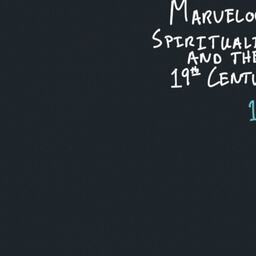 Marvelo
Spirituali
and the
19th Centu
1